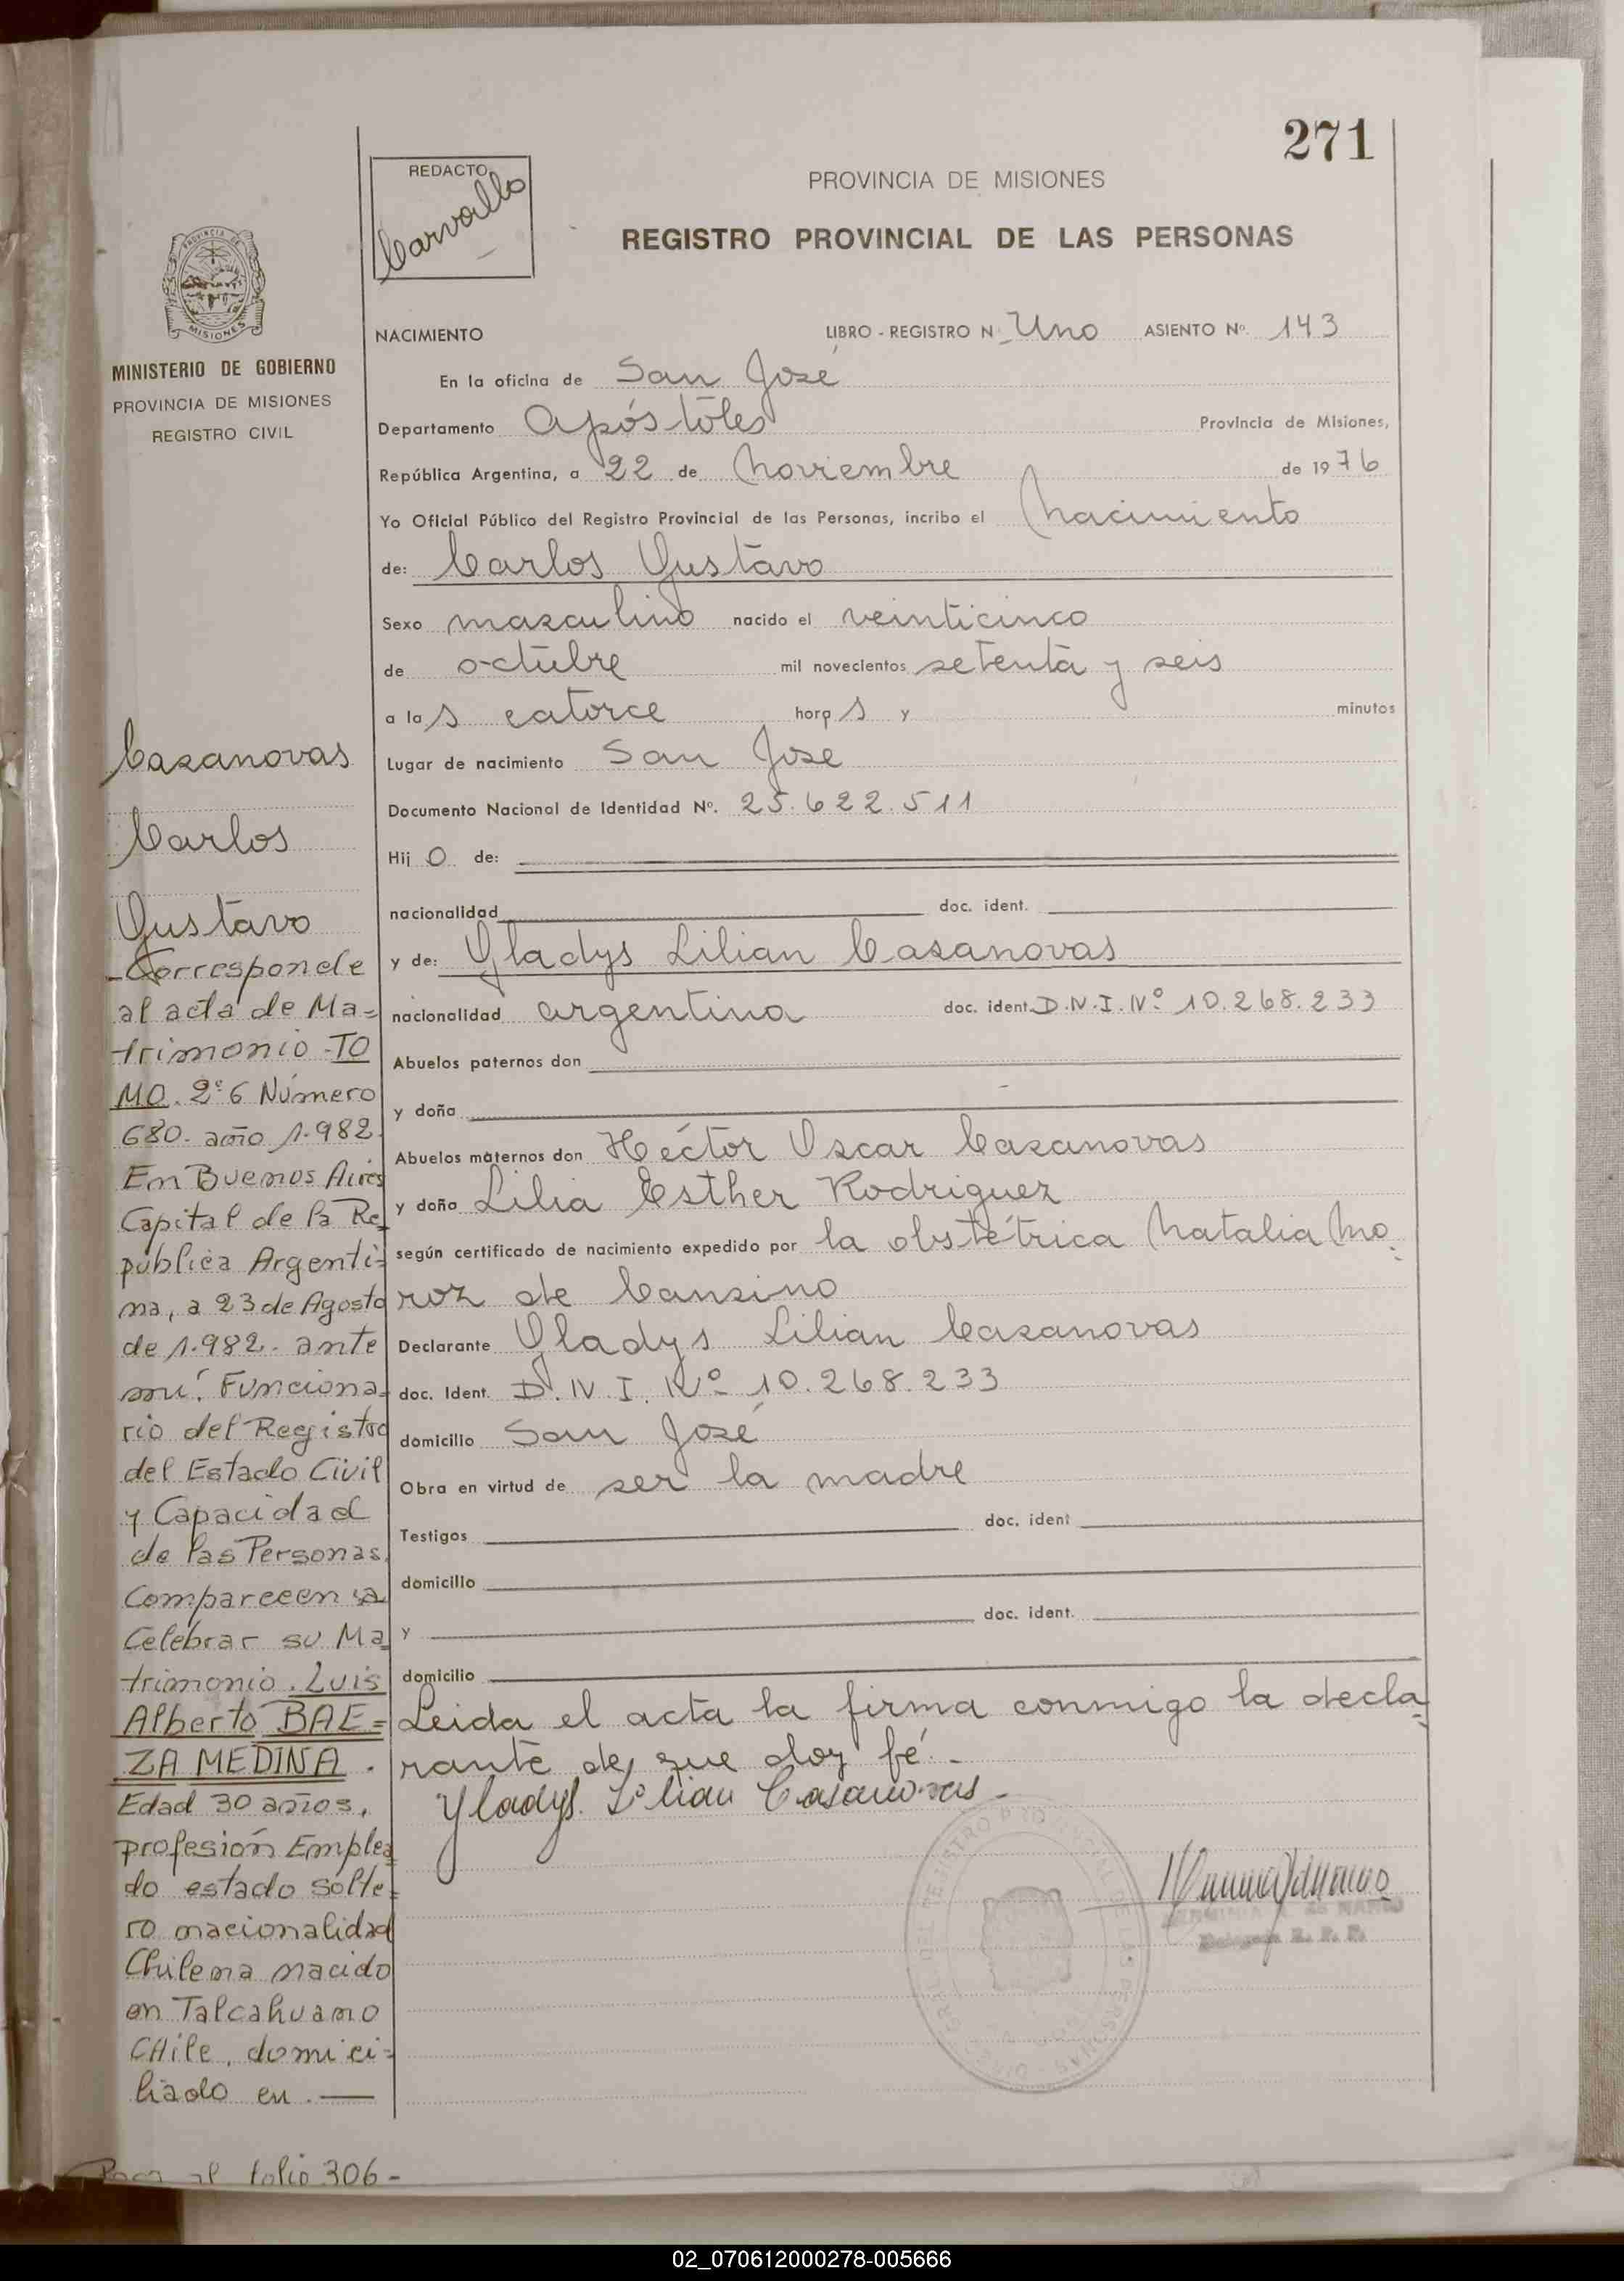 271
REDACTO
Carvallo
PROVINCIA DE MISIONES
REGISTRO PROVINCIAL DE LAS PERSONAS
MISIONES
MINISTERIO DE GOBIERNO
PROVINCIA DE MISIONES
REGISTRO CIVIL
NACIMIENTO LIBRO - REGISTRO N. Uno ASIENTO Nº. 143
En la oficina de San José
Departamento Apóstoles Provincia de Misiones,
República Argentina, a 22 de Noviembre de 1976
Yo Oficial Público del Registro Provincial de las Personas, incribo el Nacimiento
de: Carlos Gustavo
Sexo masculino nacido el veinticinco
de octubre mil novecientos setenta y seis
a las catorce horas y minutos
Lugar de nacimiento San José
Documento Nacional de Identidad Nº. 25.622.511
Hijo de:
nacionalidad doc. ident.
y de: Gladys Lilian Casanovas
nacionalidad argentina doc. ident. D.N.I.Nº 10.268.233
Abuelos paternos don
y doña
Abuelos maternos don Héctor Oscar Casanovas
y doña Lilia Esther Rodriguez
según certificado de nacimiento expedido por la obstétrica Natalia Mo
roz de Cansino
Declarante Gladys Lilian Casanovas
doc. Ident. D.N.I. Nº 10.268.233
domicilio San José
Obra en virtud de ser la madre
Testigos doc. ident
domicilio
y doc. ident.
domicilio
Leida el acta la firma conmigo la decla
rante de que doy fé.-
Gladys Lilian Casanovas
Casanovas
Carlos
Gustavo
-Corresponde
al acta de Ma=
trimonio-TO
MO. 2º6 Número
680. año 1.982.
En Buenos Aires
Capital de la Re
publica Argenti=
na, a 23 de Agosto
de 1.982. ante
mí. Funciona=
rio del Registro
del Estado Civil
y Capacidad
de las Personas.
Compareeen a
Celebrar su Ma
trimonio. Luis
Alberto BAE=
ZA MEDINA.
Edad 30 años,
profesión Emplea
do estado solte=
ro nacionalidad
Chilena nacido
en Talcahuano
CHile, domici=
liado en.—
Pasa al folio 306-
02_070612000278-005666